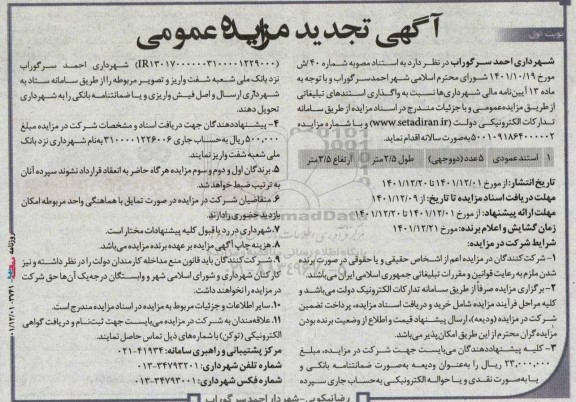 نوبت اول
آگهی تجدید مزایده عمومی
شهرداری احمد سرگوراب در نظر دارد به استناد مصوبه شماره ۴۰/ش
مورخ ۱۴۰۱/۱۰/۱۹ شورای محترم اسلامی شهر احمدسرگوراب و با توجه به
ماده ۱۳ آیین‌نامه مالی شهرداری‌ها نسبت به واگذاری استندهای تبلیغاتی
از طریق مزایده‌عمومی و با جزئیات مندرج در اسناد مزایده از طریق سامانه
تدارکات الکترونیکی دولت (www.setadiran.ir) و با شماره مزایده
۵۰۰۱۰۹۱۸۶۴۰۰۰۰۰۲ به‌صورت سالانه اقدام نماید.
۱ استند عمودی ۵عدد(دووجهی) طول ۲/۵متر ارتفاع ۳/۵متر
تاریخ انتشار: از مورخ ۱۴۰۱/۱۲/۰۱ تا ۱۴۰۱/۱۲/۲۰
مهلت دریافت اسناد مزایده تا تاریخ: از ۱۴۰۱/۱۲/۰۹
مهلت ارائه پیشنهاد: از مورخ ۱۴۰۱/۱۲/۰۱ تا ۱۴۰۱/۱۲/۲۰
زمان گشایش و اعلام برنده: مورخ ۱۴۰۱/۱۲/۲۱
شرایط شرکت در مزایده:
۱- شرکت‌کنندگان در مزایده اعم از اشخاص حقیقی و یا حقوقی در صورت برنده
شدن ملزم به رعایت قوانین و مقررات تبلیغاتی جمهوری اسلامی ایران می‌باشند.
۲- برگزاری مزایده صرفاً از طریق سامانه تدارکات الکترونیک دولت می‌باشد و
کلیه مراحل فرآیند مزایده شامل خرید و دریافت اسناد مزایده، پرداخت تضمین
شرکت در مزایده (ودیعه)، ارسال پیشنهاد قیمت و اطلاع از وضعیت برنده بودن
مزایده‌گران محترم از این طریق امکان‌پذیر می‌باشد.
۳- کلیه پیشنهاددهندگان می‌بایست جهت شرکت در مزایده، مبلغ
۲۳,۰۰۰,۰۰۰ ریال را به‌عنوان ودیعه به‌صورت ضمانتنامه بانکی و
یا به‌صورت نقدی و یا حواله الکترونیکی به‌حساب جاری سپرده
(IR۱۳۰۱۷۰۰۰۰۰۰۳۱۰۰۰۰۱۲۲۹۰۰۰) شهرداری احمد سرگوراب
نزد بانک ملی شعبه شفت واریز و تصویر مربوطه را از طریق سامانه ستاد به
شهرداری ارسال و اصل فیش واریزی و یا ضمانتنامه بانکی را به شهرداری
تحویل دهند.
۴- پیشنهاددهندگان جهت دریافت اسناد و مشخصات شرکت در مزایده مبلغ
۵۰۰,۰۰۰ ریال به‌حساب جاری ۳۱۰۰۰۰۱۲۲۶۰۰۶ به‌نام شهرداری نزد بانک
ملی شعبه شفت واریز نمایند.
۵. برندگان اول و دوم و سوم مزایده هرگاه حاضر به انعقاد قرارداد نشوند سپرده آنان
به ترتیب ضبط خواهد شد.
۶. متقاضیان شرکت در مزایده در صورت تمایل با هماهنگی واحد مربوطه امکان
بازدید حضوری را دارند.
۷. شهرداری در رد یا قبول کلیه پیشنهادات مختار است.
۸. هزینه چاپ آگهی مزایده بر عهده برنده مزایده می‌باشد.
۹. شرکت‌کنندگان باید قانون منع مداخله کارمندان دولت را در نظر داشته و نیز
کارکنان شهرداری و شورای اسلامی شهر و وابستگان درجه‌یک آن‌ها حق شرکت
در مزایده را نخواهند داشت.
۱۰. سایر اطلاعات و جزئیات مربوط به مزایده در اسناد مزایده مندرج است.
۱۱. علاقه‌مندان به شرکت در مزایده می‌بایست جهت ثبت‌نام و دریافت گواهی
الکترونیکی (توکن) با شماره‌های ذیل تماس حاصل نمایند.
مرکز پشتیبانی و راهبری سامانه: ۴۱۹۳۴-۰۲۱
شماره تلفن شهرداری: ۳۴۷۹۳۲۰۱-۰۱۳
شماره فکس شهرداری: ۳۴۷۹۳۰۰۱-۰۱۳
رضا نیکویی-شهردار احمد سرگوراب